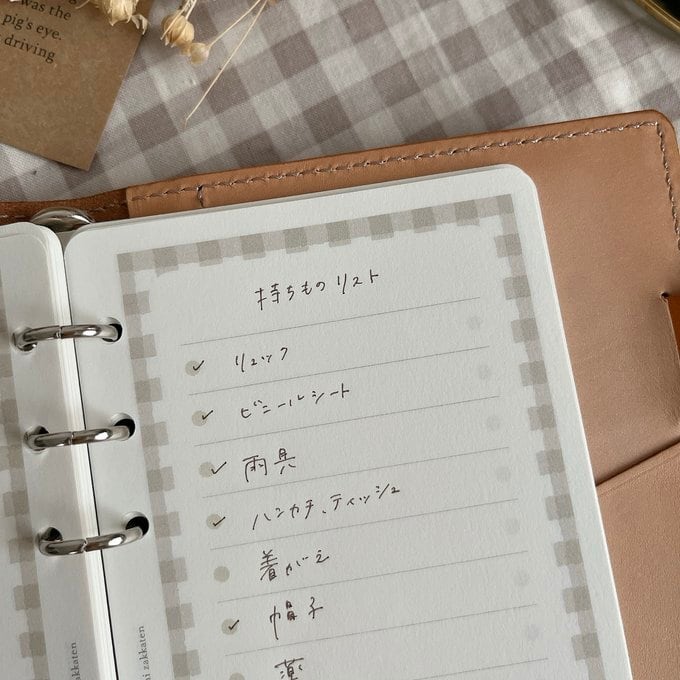 was the
pig's eye.
driving
持ちものリスト
✓ リュック
✓ ビニールシート
✓ 雨具
✓ ハンカチ、ティッシュ
着がえ
✓ 帽子
薬
zakkaten